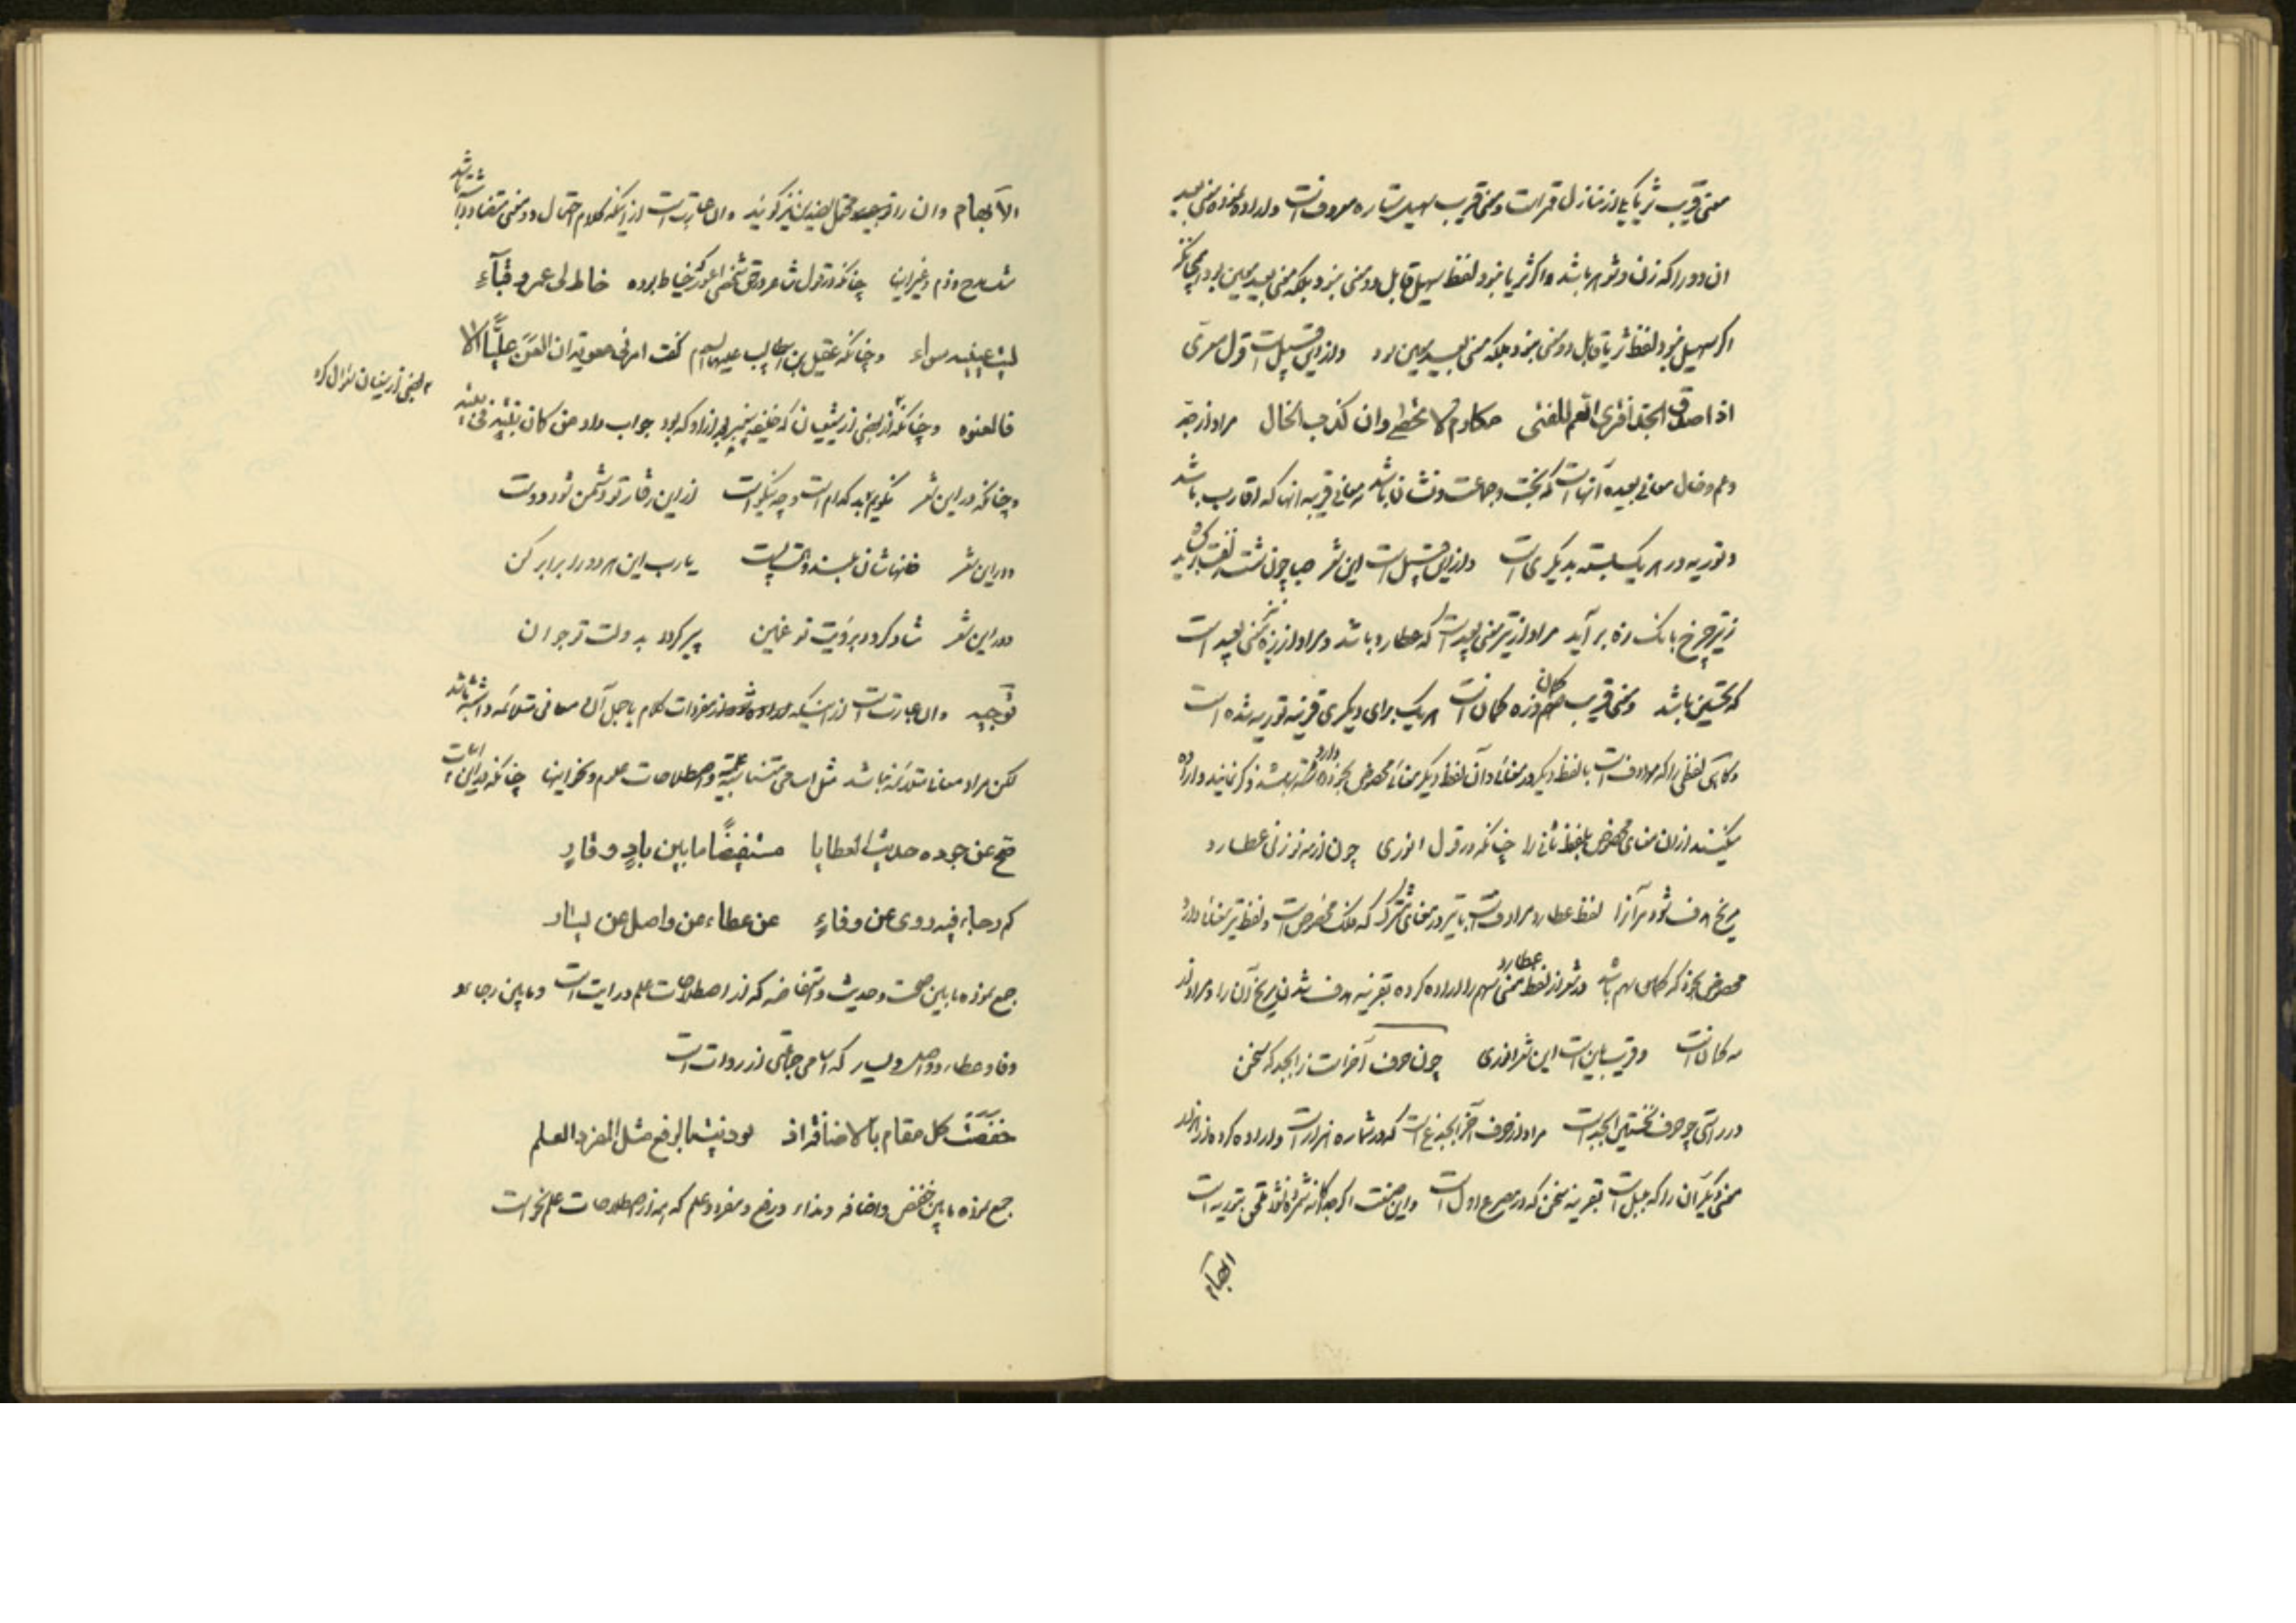 معنی قریب ثریا یکی از منازل قمرست و معنی قریب سهیل ستاره معروفست و اراده نموده معنی بعید
ان دو را که زن و شوهر باشد و اکر ثریا نبود لفظ سهیل قابل دو معنی نبود بلکه معنی بعید معین بود همچنانکه
اکر سهیل نبود لفظ ثریا قابل دو معنی نبود بلکه معنی بعید معین بود و از این قبیلست قول معری
اذا صدق الجد افتری العم للفتی مکارم لا تخطی وان کذب الخال مراد از جد
و عم و خال معانی بعیده آنهاست که بخت و جماعت و نشان باشد و معانی قریبه انها که اقارب باشد
و توریه در هر یک بسته بدیکری است و از این قبیل است این شعر
ز تیر چرخ بانک زه بر آید مراد از تیر معنی بعیدست که عطارد باشد و مراد از زه نیز معنی بعید است
که تحسین باشد و معنی قریب سهم و زه کمان است هر یک برای دیکری قرینه توریه شده است
و کاهی لفظی را که مرادفست با لفظ دیکر در معنائی و آن لفظ دیکر معنائی مخصوص بخود دارد ذکر نمایند و اراده
میکنند از ان معنای مخصوص بلفظ ثانی را چنانکه در قول انوری چون از مه نو زنی عطارد
مریخ هدف شود مر آنرا لفظ عطارد مرادفست با تیر در معنای مشترک که فلک مخصوص است و لفظ تیر معنائی دارد
مخصوص بخود که کمان سهم باشد و در شعر از لفظ عطارد معنی سهم را اراده کرده بقرینه هدف شدن مریخ آن را و مراد از
مه کمان است و قریب باین است این شعر انوری چون حرف آخرست ز ابجد که سخن
در راستی چو حرف نخستین ابجدست مراد از حرف آخر ابجد غ است که در شماره هزار است و اراده کرده از هزار
معنی دیکر آن را که بلبل است بقرینه سخن که در مصرع اول است و این صنعت اکر جداکانه شمرده نشود ملحق بتوریه است
ابهام
الابهام وان را توجیه و محتمل الضدین نیز کویند و ان عبارتست از اینکه کلام احتمال دو معنی متضاد داشته باشد
مثل مدح و ذم و غیر اینها چنانکه در قول شاعر در حق شخصی اعور که خیاط بوده خاط لی عمرو قبآء
لیت عینیه سواء و چنانکه عقیل بن ابیطالب علیهما السلام کفت امرنی معویه ان العن علیّا الا
فالعنوه و چنانکه از بعضی از شیعیان که خلیفه پیغمبر بعد از او که بود جواب داد من کان بنته فی بیته
بعضی از سنیان سؤال کرد
و چنانکه در این شعر نکویم بد کدام است و چه نیکوست از این رفتار تو دشمن شود دوست
و در این شعر خانهاشان بلند و همت پست یا رب این هر دو را برابر کن
و در این شعر شاد کردد برؤیت تو غمین پیر کردد بدولت تو جوان
توجیه و ان عبارت است از اینکه مفردات کلام یا جمل آن معانی متلائمه داشته باشد
لکن مراد معانی متلائمه نباشد مثل اسامی متناسبه و اصطلاحات علوم و نحو اینها چنانکه در این ابیات
صح عن جوده حدیث العطایا مستفیضًا ما بین بادٍ و قارٍ
کم رجاء فیه روی عن وفاءٍ عن عطاء عن واصل عن یسار
جمع نموده ما بین صحت و حدیث و استفاضه که از اصطلاحات علم درایت است و ما بین رجاء
وفا و عطاء و واصل و یسار که اسامی جماعتی از روات است
خفضت کل مقام بالاضافة اذ نودیت بالرفع مثل المفرد العلم
جمع نموده ما بین خفض و اضافه و نداء و رفع و مفرد و علم که همه از اصطلاحات علم نحو است